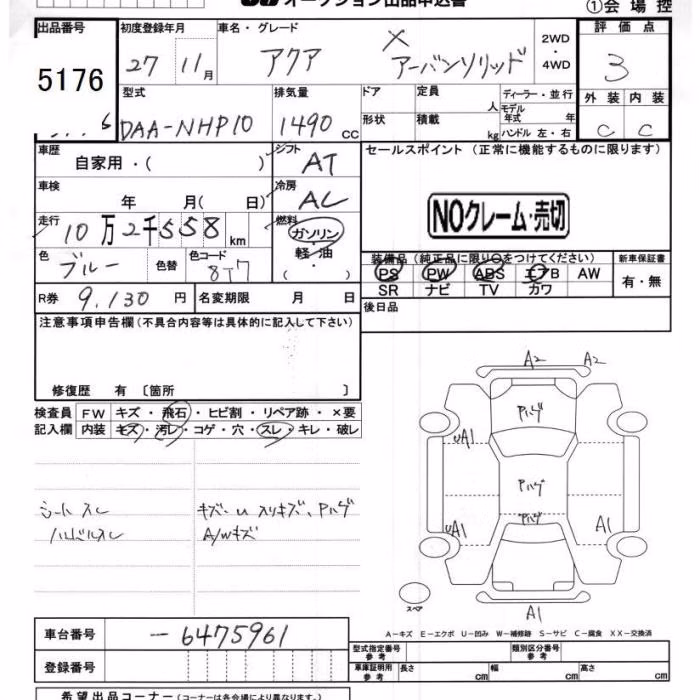 オークション出品申込書
①会場控
出品番号 初度登録年月 車名・グレード 2WD・4WD 評価点
5176 27 11月 アクア X アーバンソリッド 3
型式 排気量 ドア 定員 人 ディーラー・並行 外装 内装
DAA-NHP10 1490cc 形状 積載 kg モデル年式 年 ハンドル 左・右 C C
車歴 自家用・( ) シフト AT セールスポイント (正常に機能するものに限ります)
車検 年 月(日) 冷房 AC
NOクレーム・売切
走行 10万2千558km 燃料 ガソリン・軽油・( )
色 ブルー 色替 色コード 8T7
装備品(純正品に限り○をつけてください) 新車保証書
PS PW ABS エアB AW 有・無
SR ナビ TV カワ
R券 9,130円 名変期限 月 日
後日品
注意事項申告欄(不具合内容等は具体的に記入して下さい)
修復歴 有 〔箇所 〕
検査員 FW キズ・飛石・ヒビ割・リペア跡・×要
記入欄 内装 キズ・汚レ・コゲ・穴・スレ・キレ・破レ
A2 A2
Pハゲ
UA1
Pハゲ
Pハゲ
UA1 A1
A1
スペア
シートスレ
ハンドルスレ
キズ、U スリキズ、Pハゲ
A/Wキズ
A-キズ E-エクボ U-凹み W-補修跡 S-サビ C-腐食 XX-交換済
車台番号 -6475961
登録番号
型式指定番号 参考 類別区分番号 参考
車庫証明用 参考 長さ cm 幅 cm 高さ cm
希望出品コーナー (コーナーは各会場により異なります)